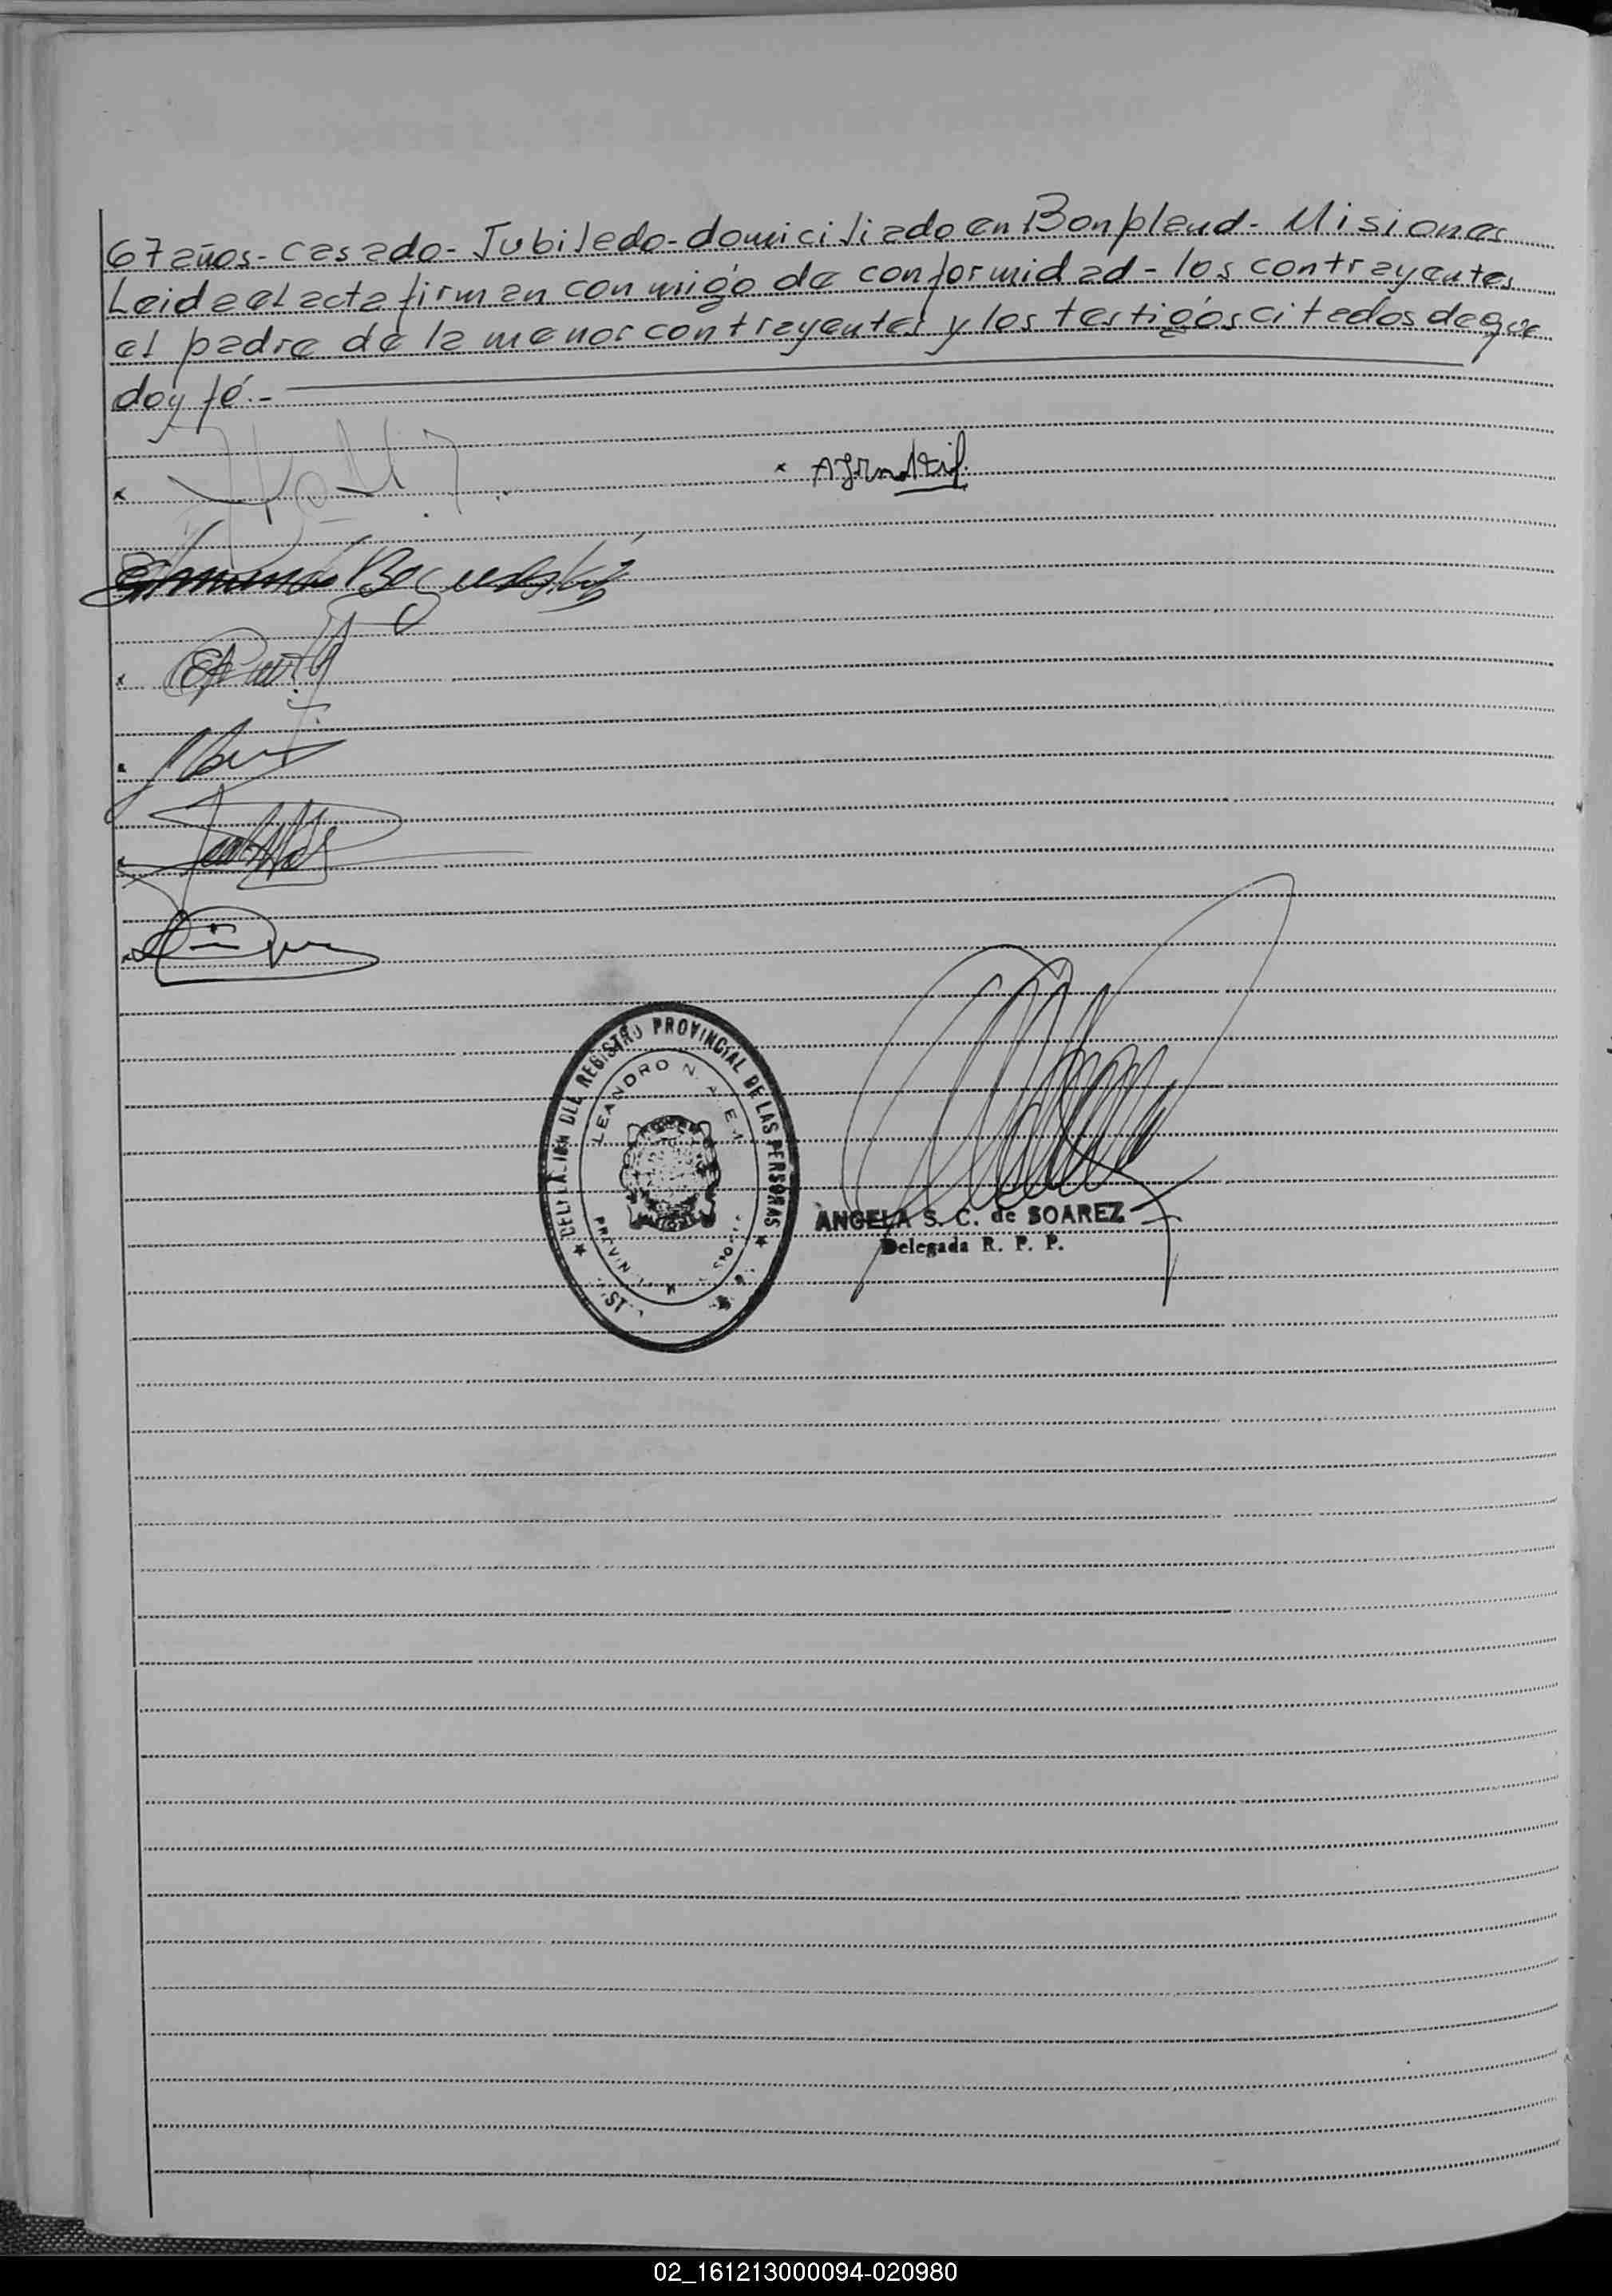 67 años - casado - Jubilado - domiciliado en Bonpland - Misiones
Leida el acta firman con migo de conformidad - los contrayentes
el padre de la menor contrayentes y los testigos citados de que
doy fé. -
DEL REGISTRO PROVINCIAL DE LAS PERSONAS
LEANDRO N.
ANGELA S. C. de SOAREZ
Delegada R. P. P.
02_161213000094-020980